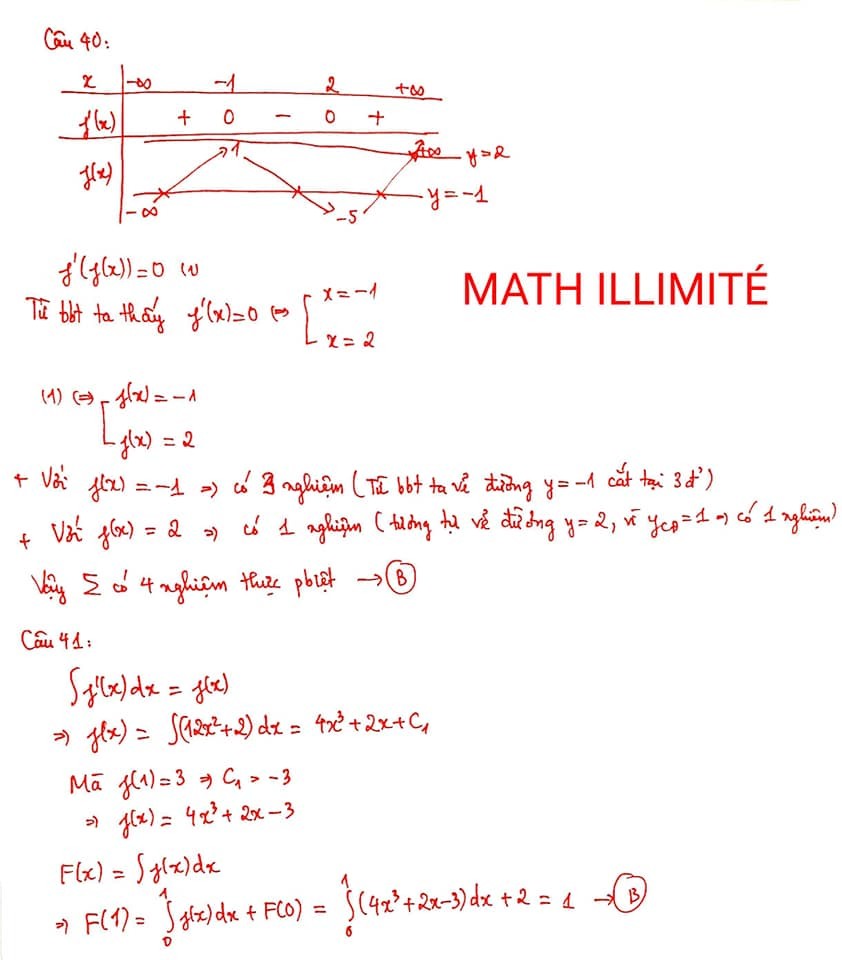 Câu 40:
x -∞ -1 2 +∞
f'(x) + 0 - 0 +
f(x) -∞ 1 -5 +∞ y=2
y=-1
f'(f(x))=0 (1)
MATH ILLIMITÉ
Từ bbt ta thấy f'(x)=0 ⇔ [ x=-1
x=2
(1) ⇔ [ f(x)=-1
f(x)=2
+ Với f(x)=-1 ⇒ có 3 nghiệm (Từ bbt ta vẽ đường y=-1 cắt tại 3 đ')
+ Với f(x)=2 ⇒ có 1 nghiệm (tương tự vẽ đường y=2, vì yCĐ=1 ⇒ có 1 nghiệm)
Vậy Σ có 4 nghiệm thực pbiệt → B
Câu 41:
∫f'(x)dx = f(x)
⇒ f(x) = ∫(12x²+2)dx = 4x³+2x+C₁
Mà f(1)=3 ⇒ C₁=-3
⇒ f(x) = 4x³+2x-3
F(x) = ∫f(x)dx
⇒ F(1) = ∫₀¹f(x)dx + F(0) = ∫₀¹(4x³+2x-3)dx + 2 = 1 → B